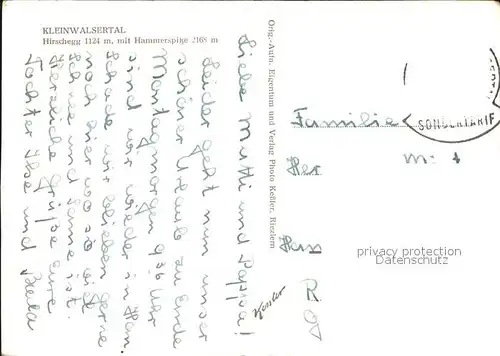 KLEINWALSERTAL
Hirschegg 1124 m, mit Hammerspitze 2168 m
Liebe Mutti und Pappa!
Leider geht nun unser
schöner Urlaub zu Ende
Montagmorgen 9 00 Uhr
sind wir wieder in Han.
Schade wir blieben gerne
noch hier wo so viel
Schnee und Sonne ist.
Herzliche Grüße Eure
Tochter Ilse und
Orig.-Aufn. Eigentum und Verlag Photo Keßler, Riezlern
Kessler
SONDERTARIF
Familie
Her
m
Han
R
privacy protection
Datenschutz